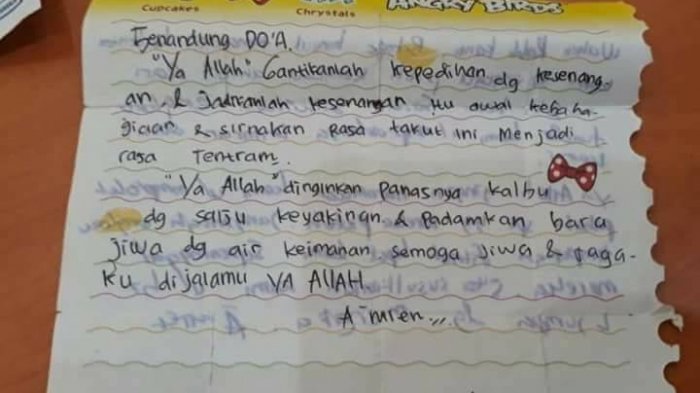 Cupcakes Chrystals ANGRY BIRDS
Senandung DO'A.
"Ya Allah" Gantikanlah kepedihan dg kesenang-
an & Jadikanlah kesenangan itu awal kebaha-
giaan & sirnakan rasa takut ini Menjadi
rasa Tentram.
"Ya Allah" dinginkan panasnya kalbu
dg salju keyakinan & Padamkan bara
jiwa dg air keimanan semoga Jiwa & raga-
ku dijalamu YA ALLAH
Aimren...